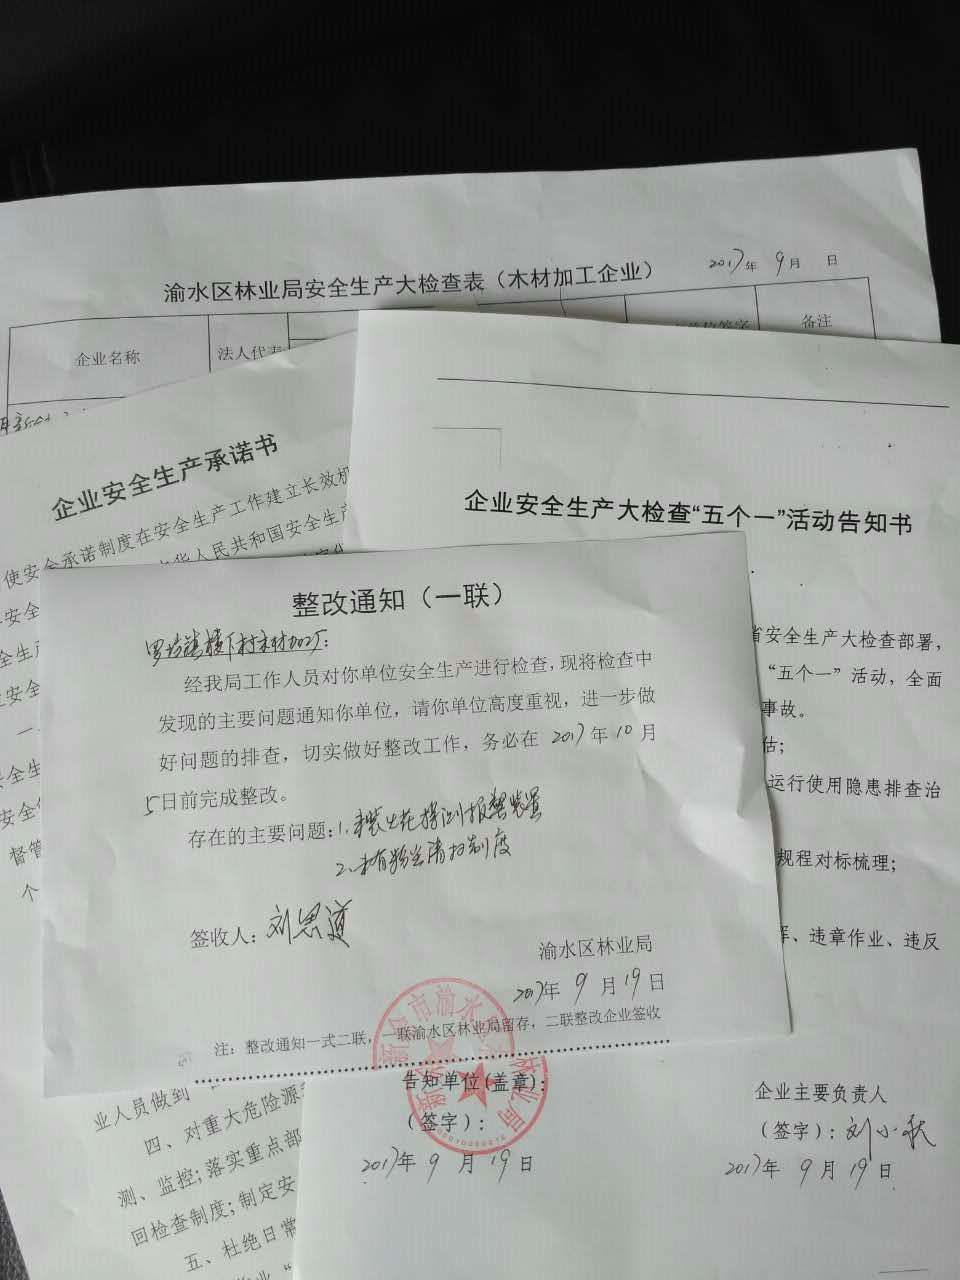 渝水区林业局安全生产大检查表（木材加工企业）
2017年 9月 日
企业名称
法人代表
签字
备注
企业安全生产承诺书
使安全承诺制度在安全生产工作建立长效机
华人民共和国安全生产
安全
全生产
安全
一
安全生
安全
督管
个
业人员做到
四、对重大危险源
测、监控；落实重点部
回检查制度；制定安
五、杜绝日常
企业安全生产大检查“五个一”活动告知书
省安全生产大检查部署，
“五个一”活动，全面
事故。
估；
运行使用隐患排查治
规程对标梳理；
、违章作业、违反
告知单位(盖章)：
（签字）：
2017年 9 月 19日
企业主要负责人
（签字）：刘小秋
2017年 9月 19日
整改通知（一联）
罗坊镇楼下村木材加工厂：
经我局工作人员对你单位安全生产进行检查，现将检查中
发现的主要问题通知你单位，请你单位高度重视，进一步做
好问题的排查，切实做好整改工作，务必在 2017 年 10 月
5日前完成整改。
存在的主要问题：1、未装火花探测报警装置
2、未有粉尘清扫制度
签收人：刘思道
渝水区林业局
2017年 9 月 19日
注：整改通知一式二联，一联渝水区林业局留存，二联整改企业签收
新余市渝水
林业局